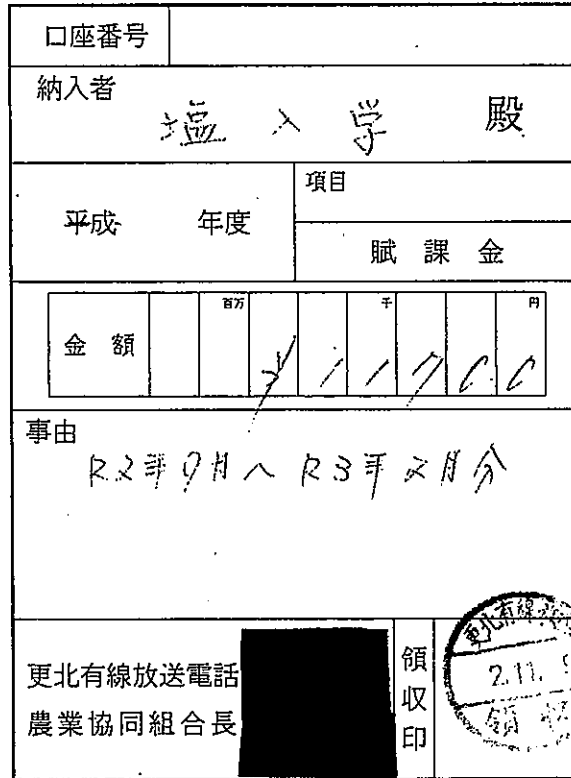 口座番号
納入者
塩入学 殿
平成 年度
項目
賦課金
百万 千 円
金額 ¥ 1 1 7 0 0
事由
R2年9月〜R3年2月分
更北有線放送電話
農業協同組合長
領収印
更北有線放
2.11.9
領収